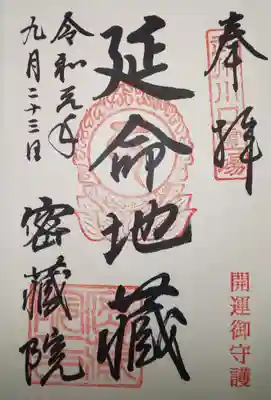 奉拝
開運御守護
延命地蔵
令和元年
九月二十三日
密蔵院